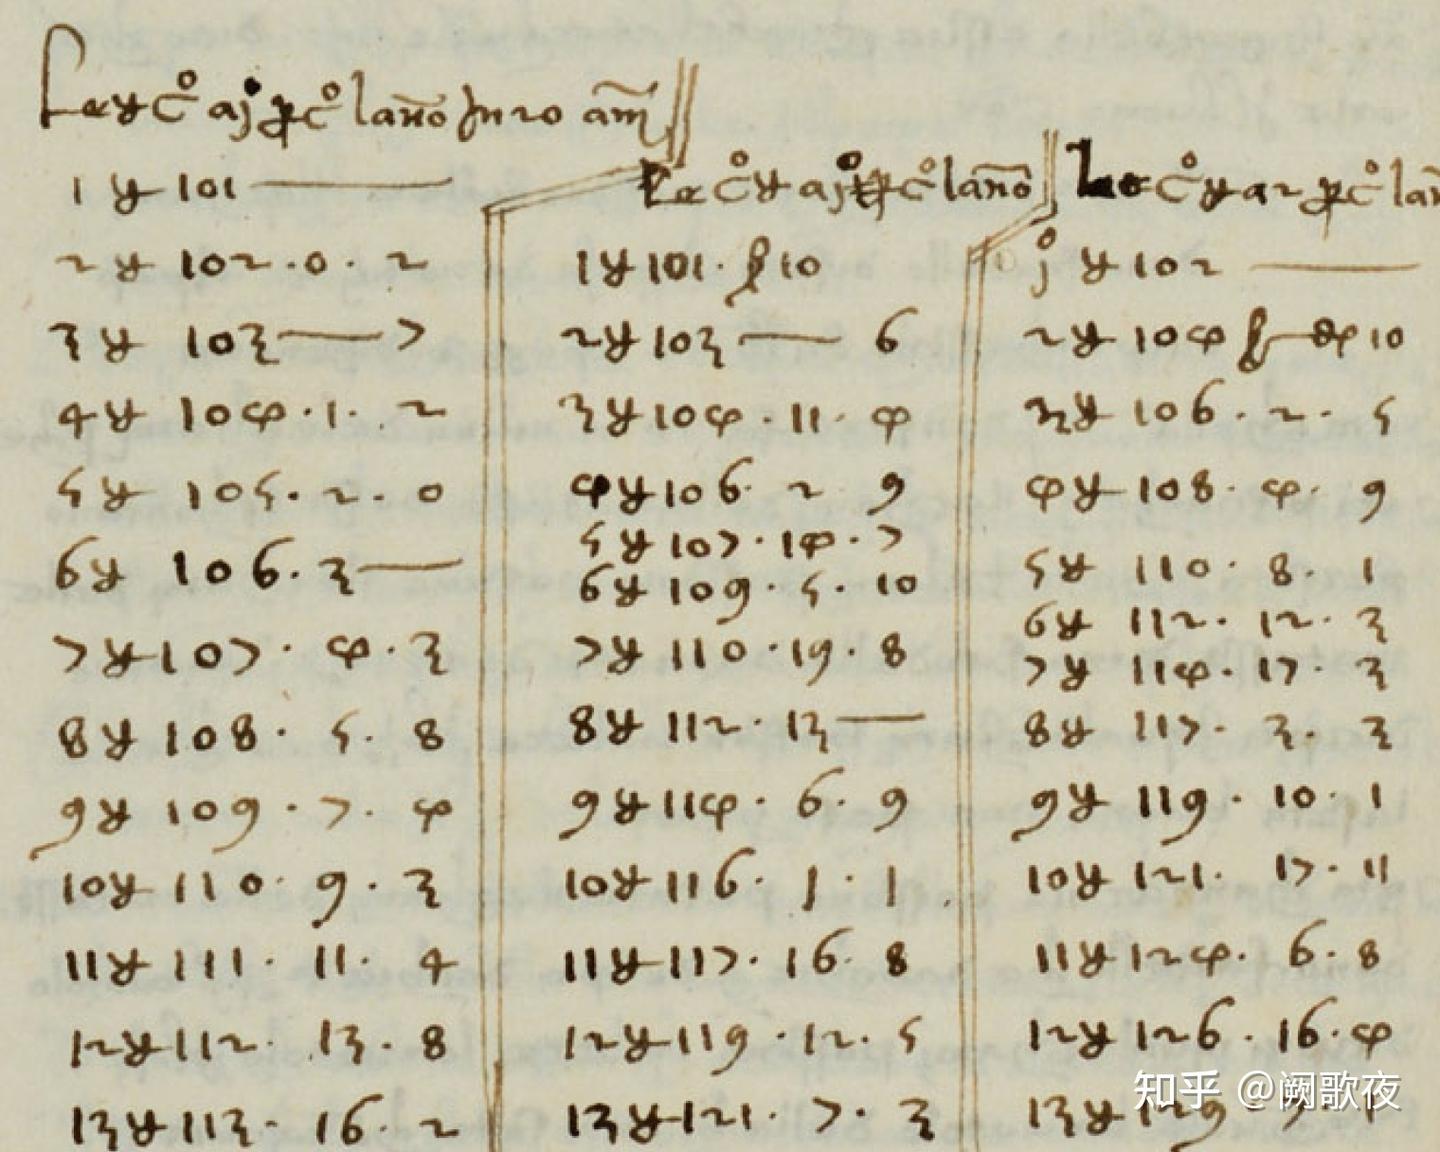 Le ℔ C° a j° ꝑ C° lan̄o In 20 am̄
1 ℔ 101 —
2 ℔ 102 · 0 · 2
3 ℔ 103 — 7
4 ℔ 104 · 1 · 2
5 ℔ 105 · 2 · 0
6 ℔ 106 · 3 —
7 ℔ 107 · 4 · 3
8 ℔ 108 · 5 · 8
9 ℔ 109 · 7 · 4
10 ℔ 110 · 9 · 3
11 ℔ 111 · 11 · 4
12 ℔ 112 · 13 · 8
13 ℔ 113 · 16 · 2
Le C° ℔ a j° ꝑ C° lan̄o
1 ℔ 101 · ſ 10
2 ℔ 103 — 6
3 ℔ 104 · 11 · 4
4 ℔ 106 · 2 · 9
5 ℔ 107 · 14 · 7
6 ℔ 109 · 5 · 10
7 ℔ 110 · 19 · 8
8 ℔ 112 · 13 —
9 ℔ 114 · 6 · 9
10 ℔ 116 · 1 · 1
11 ℔ 117 · 16 · 8
12 ℔ 119 · 12 · 5
13 ℔ 121 · 7 · 3
Le C° ℔ a 2 ꝑ C° lan̄
j° ℔ 102 —
2 ℔ 104 ſ — 10
3 ℔ 106 · 2 · 5
4 ℔ 108 · 4 · 9
5 ℔ 110 · 8 · 1
6 ℔ 112 · 12 · 3
7 ℔ 114 · 17 · 3
8 ℔ 117 · 3 · 3
9 ℔ 119 · 10 · 1
10 ℔ 121 · 17 · 11
11 ℔ 124 · 6 · 8
12 ℔ 126 · 16 · 4
13 ℔ 129
知乎 @阙歌夜